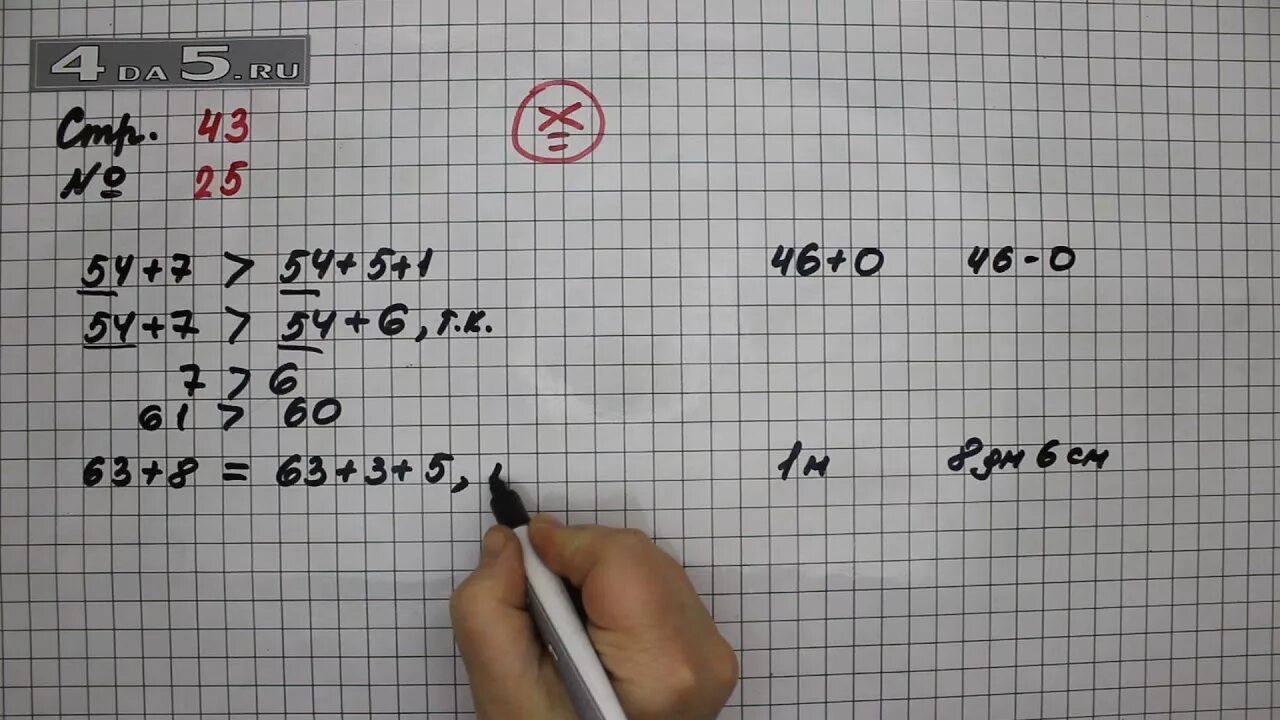 4DA5.RU
Стр. 43
№ 25
54+7 > 54+5+1
54+7 > 54+6, т.к.
7 > 6
61 > 60
63+8 = 63+3+5,
46+0 46-0
1м 8дм 6см